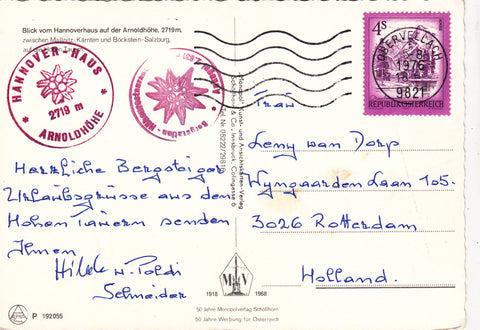 Blick vom Hannoverhaus auf der Arnoldhöhe, 2719 m,
zwischen Mallnitz-Kärnten und Böckstein-Salzburg,
HANNOVER - HAUS
2719 m
ARNOLDHÖHE
4s
REPUBLIK ÖSTERREICH
OBERVELLACH
1976
9821
"Monopol" Kunst- und Ansichtskarten-Verlag
Schöllhorn & Co., Innsbruck, Colingasse 6
Herzliche Bergsteiger
Urlaubsgrüsse aus den
Hohen Tauern senden
Ihnen
Hilde u. Poldi
Schneider
Frau
Leny van Dorp
Wyngaarden Laan 105.
3026 Rotterdam
Holland.
M V
1918 1968
50 Jahre Monopolverlag Schöllhorn
50 Jahre Werbung für Österreich
P 192055